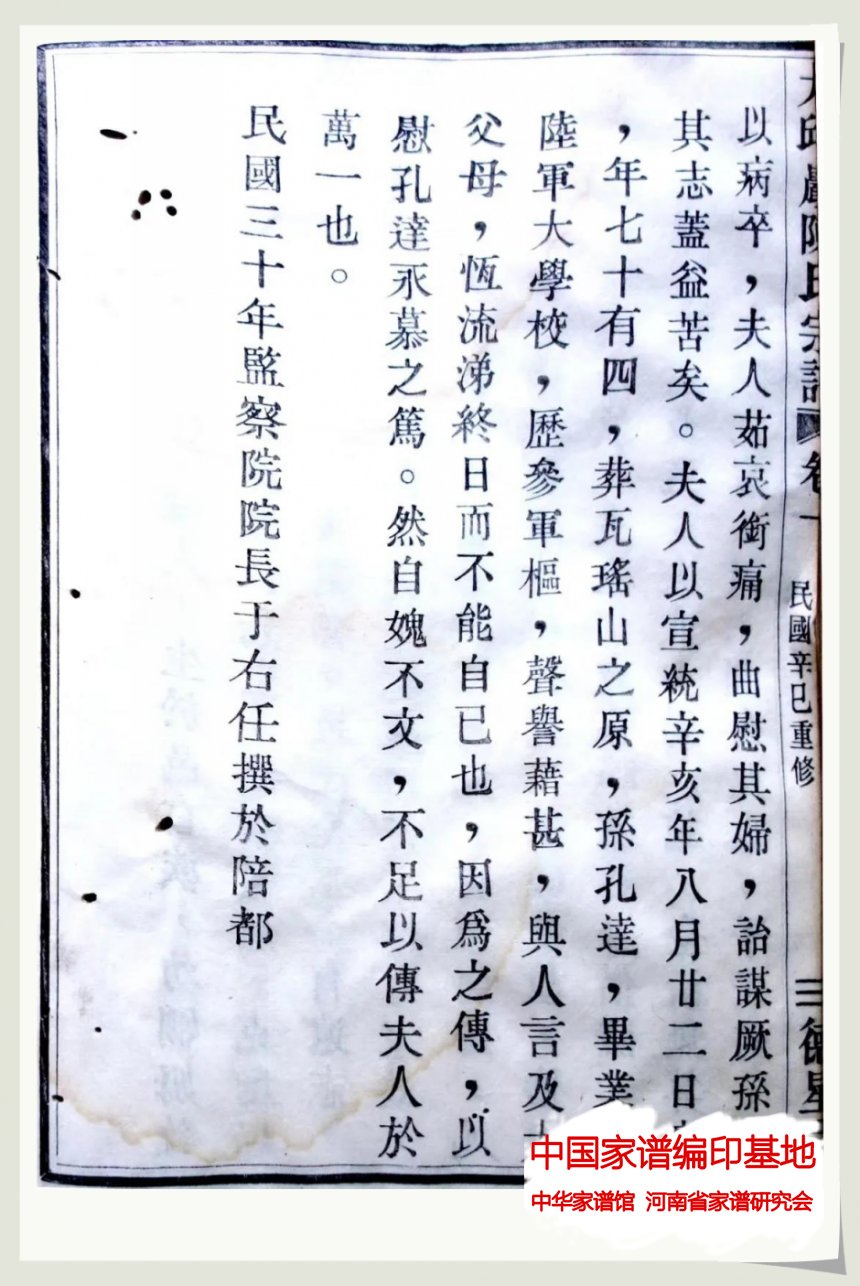 邱巖陳氏宗譜 卷一 民國辛巳重修 三 德星
以病卒，夫人茹哀銜痛，曲慰其婦，詒謀厥孫
其志蓋益苦矣。夫人以宣統辛亥年八月廿二日
，年七十有四，葬瓦瑤山之原，孫孔達，畢業
陸軍大學校，歷參軍樞，聲譽藉甚，與人言及
父母，恆流涕終日而不能自已也，因爲之傳，以
慰孔達永慕之篤。然自媿不文，不足以傳夫人於
萬一也。
民國三十年監察院院長于右任撰於陪都
中国家谱编印基地
中华家谱馆 河南省家谱研究会